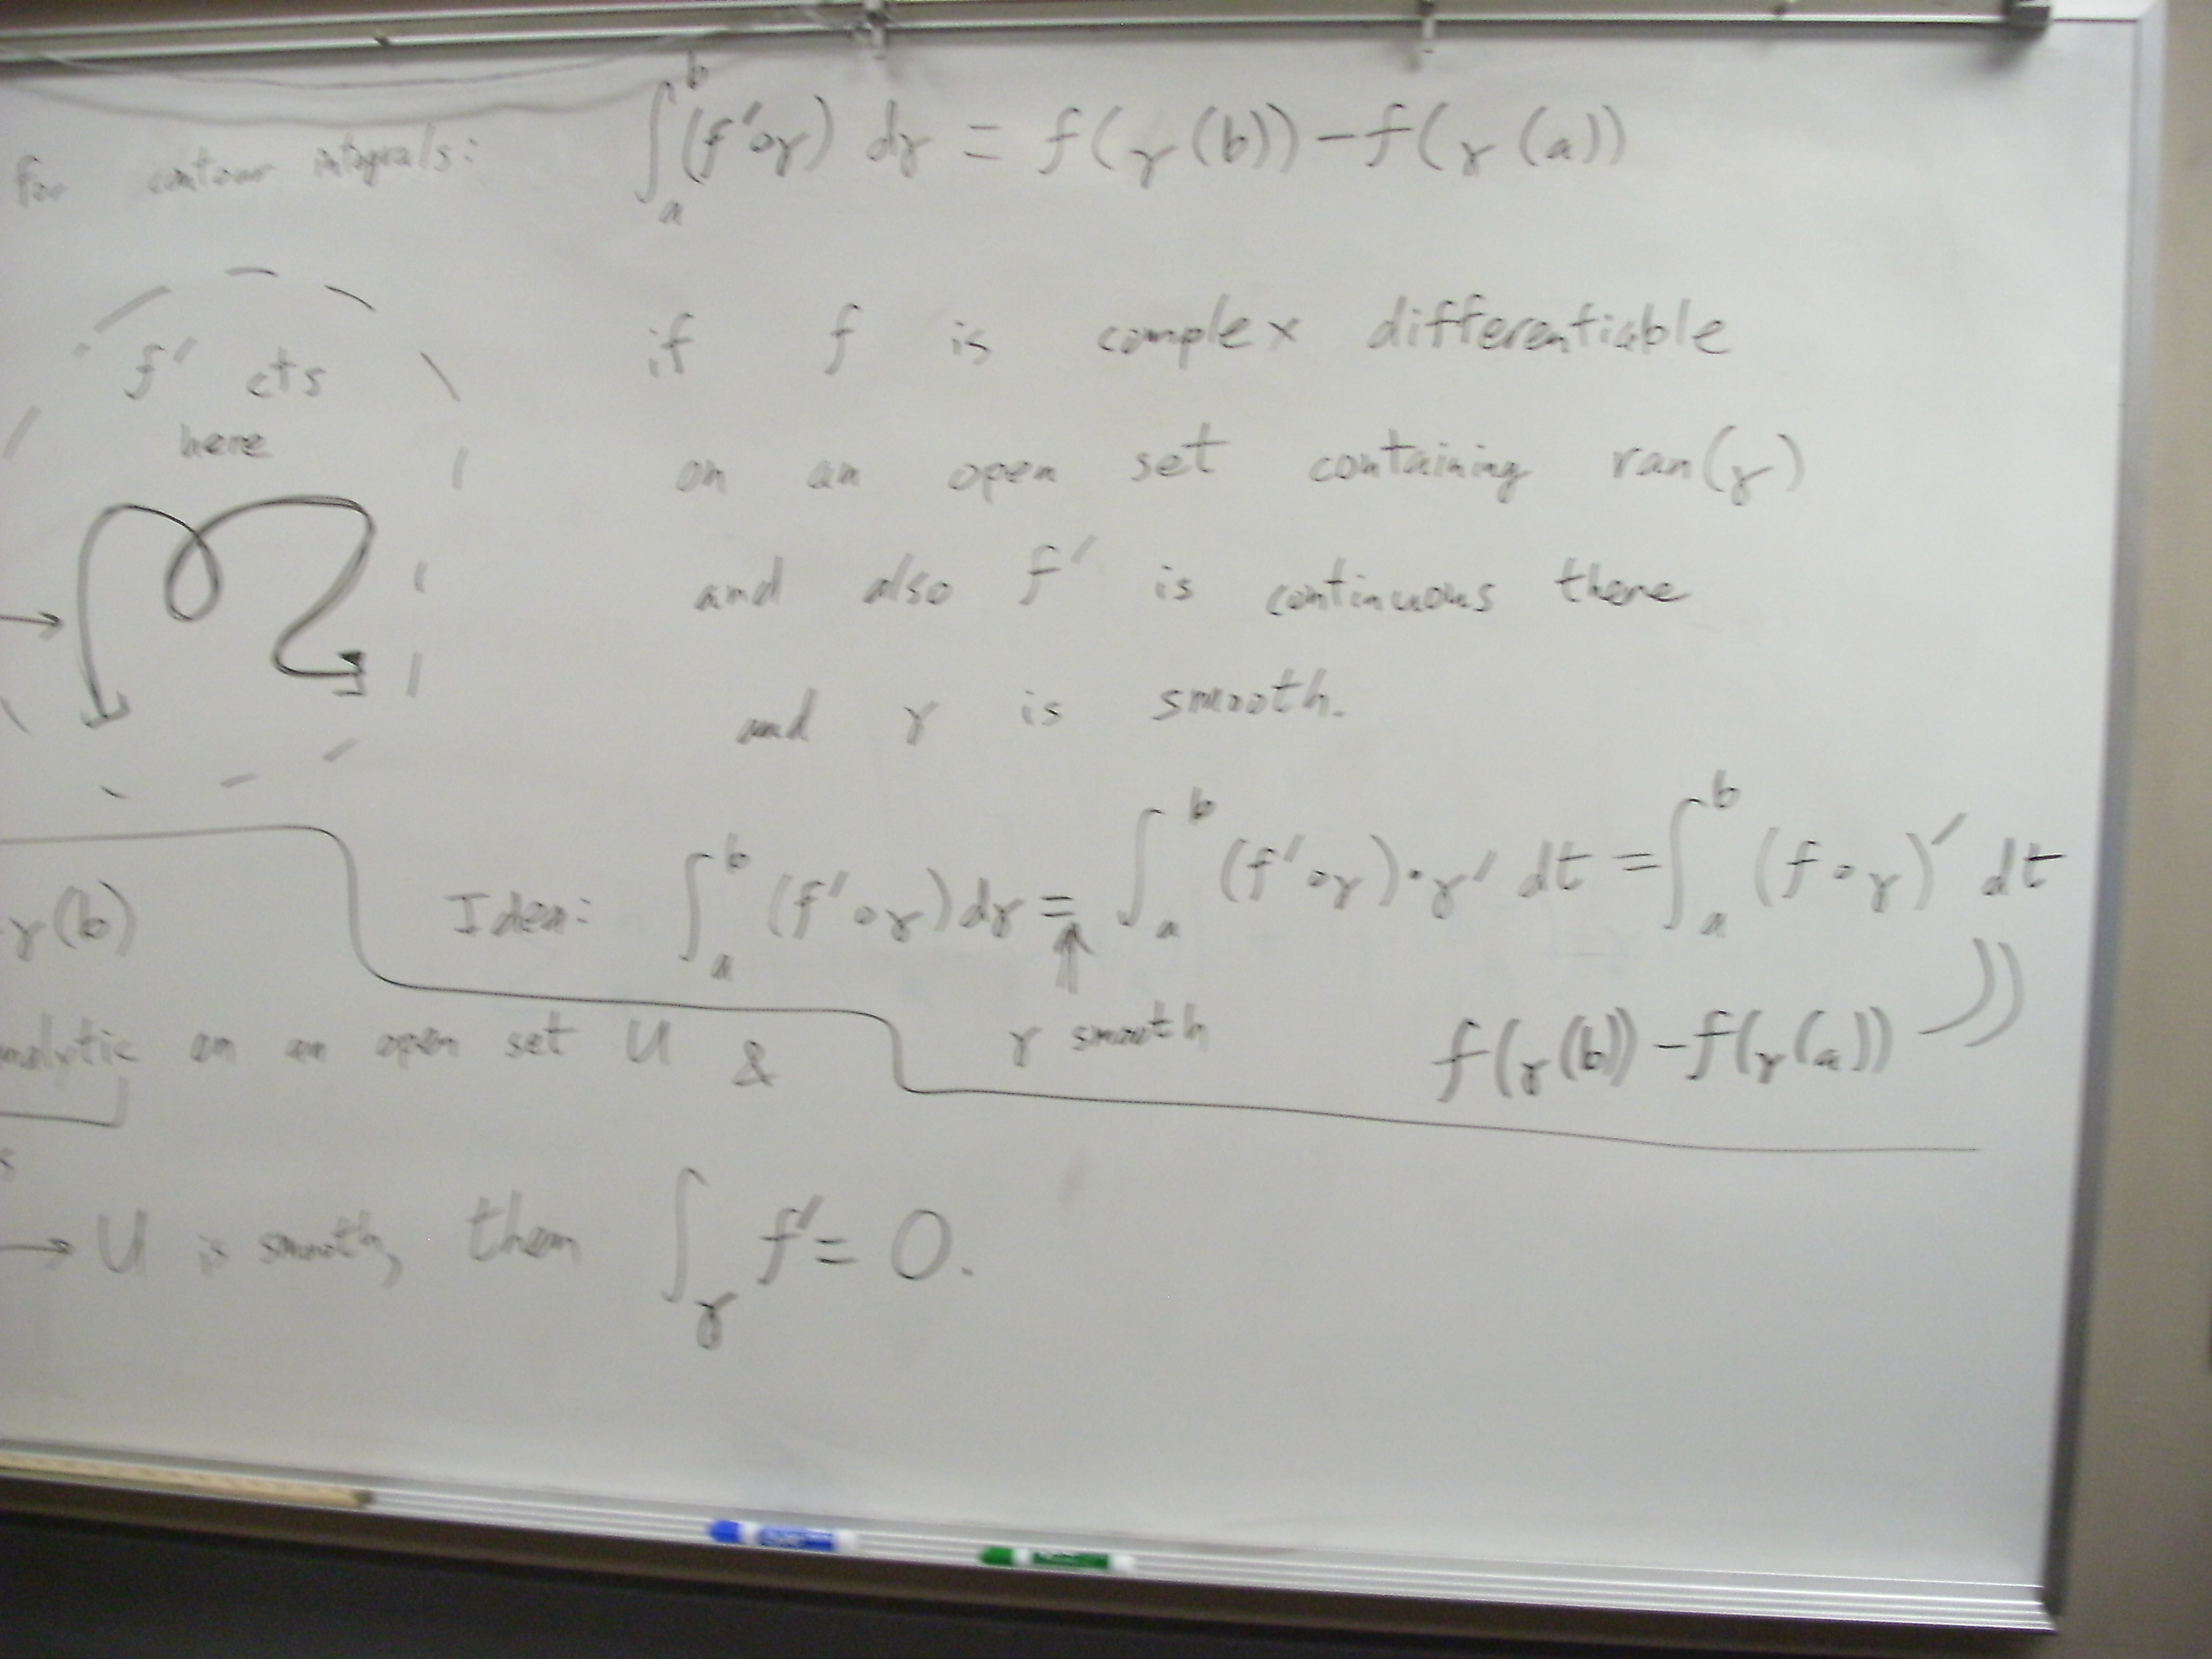 for contour integrals: ∫_a^b (f'∘γ) dγ = f(γ(b)) - f(γ(a))
f' cts
here
if f is complex differentiable
on an open set containing ran(γ)
and also f' is continuous there
and γ is smooth.
Idea: ∫_a^b (f'∘γ) dγ = ∫_a^b (f'∘γ)·γ' dt = ∫_a^b (f∘γ)' dt
γ smooth
f(γ(b)) - f(γ(a))
γ(b)
analytic on an open set U &
→ U is smooth, then ∫_γ f' = 0.